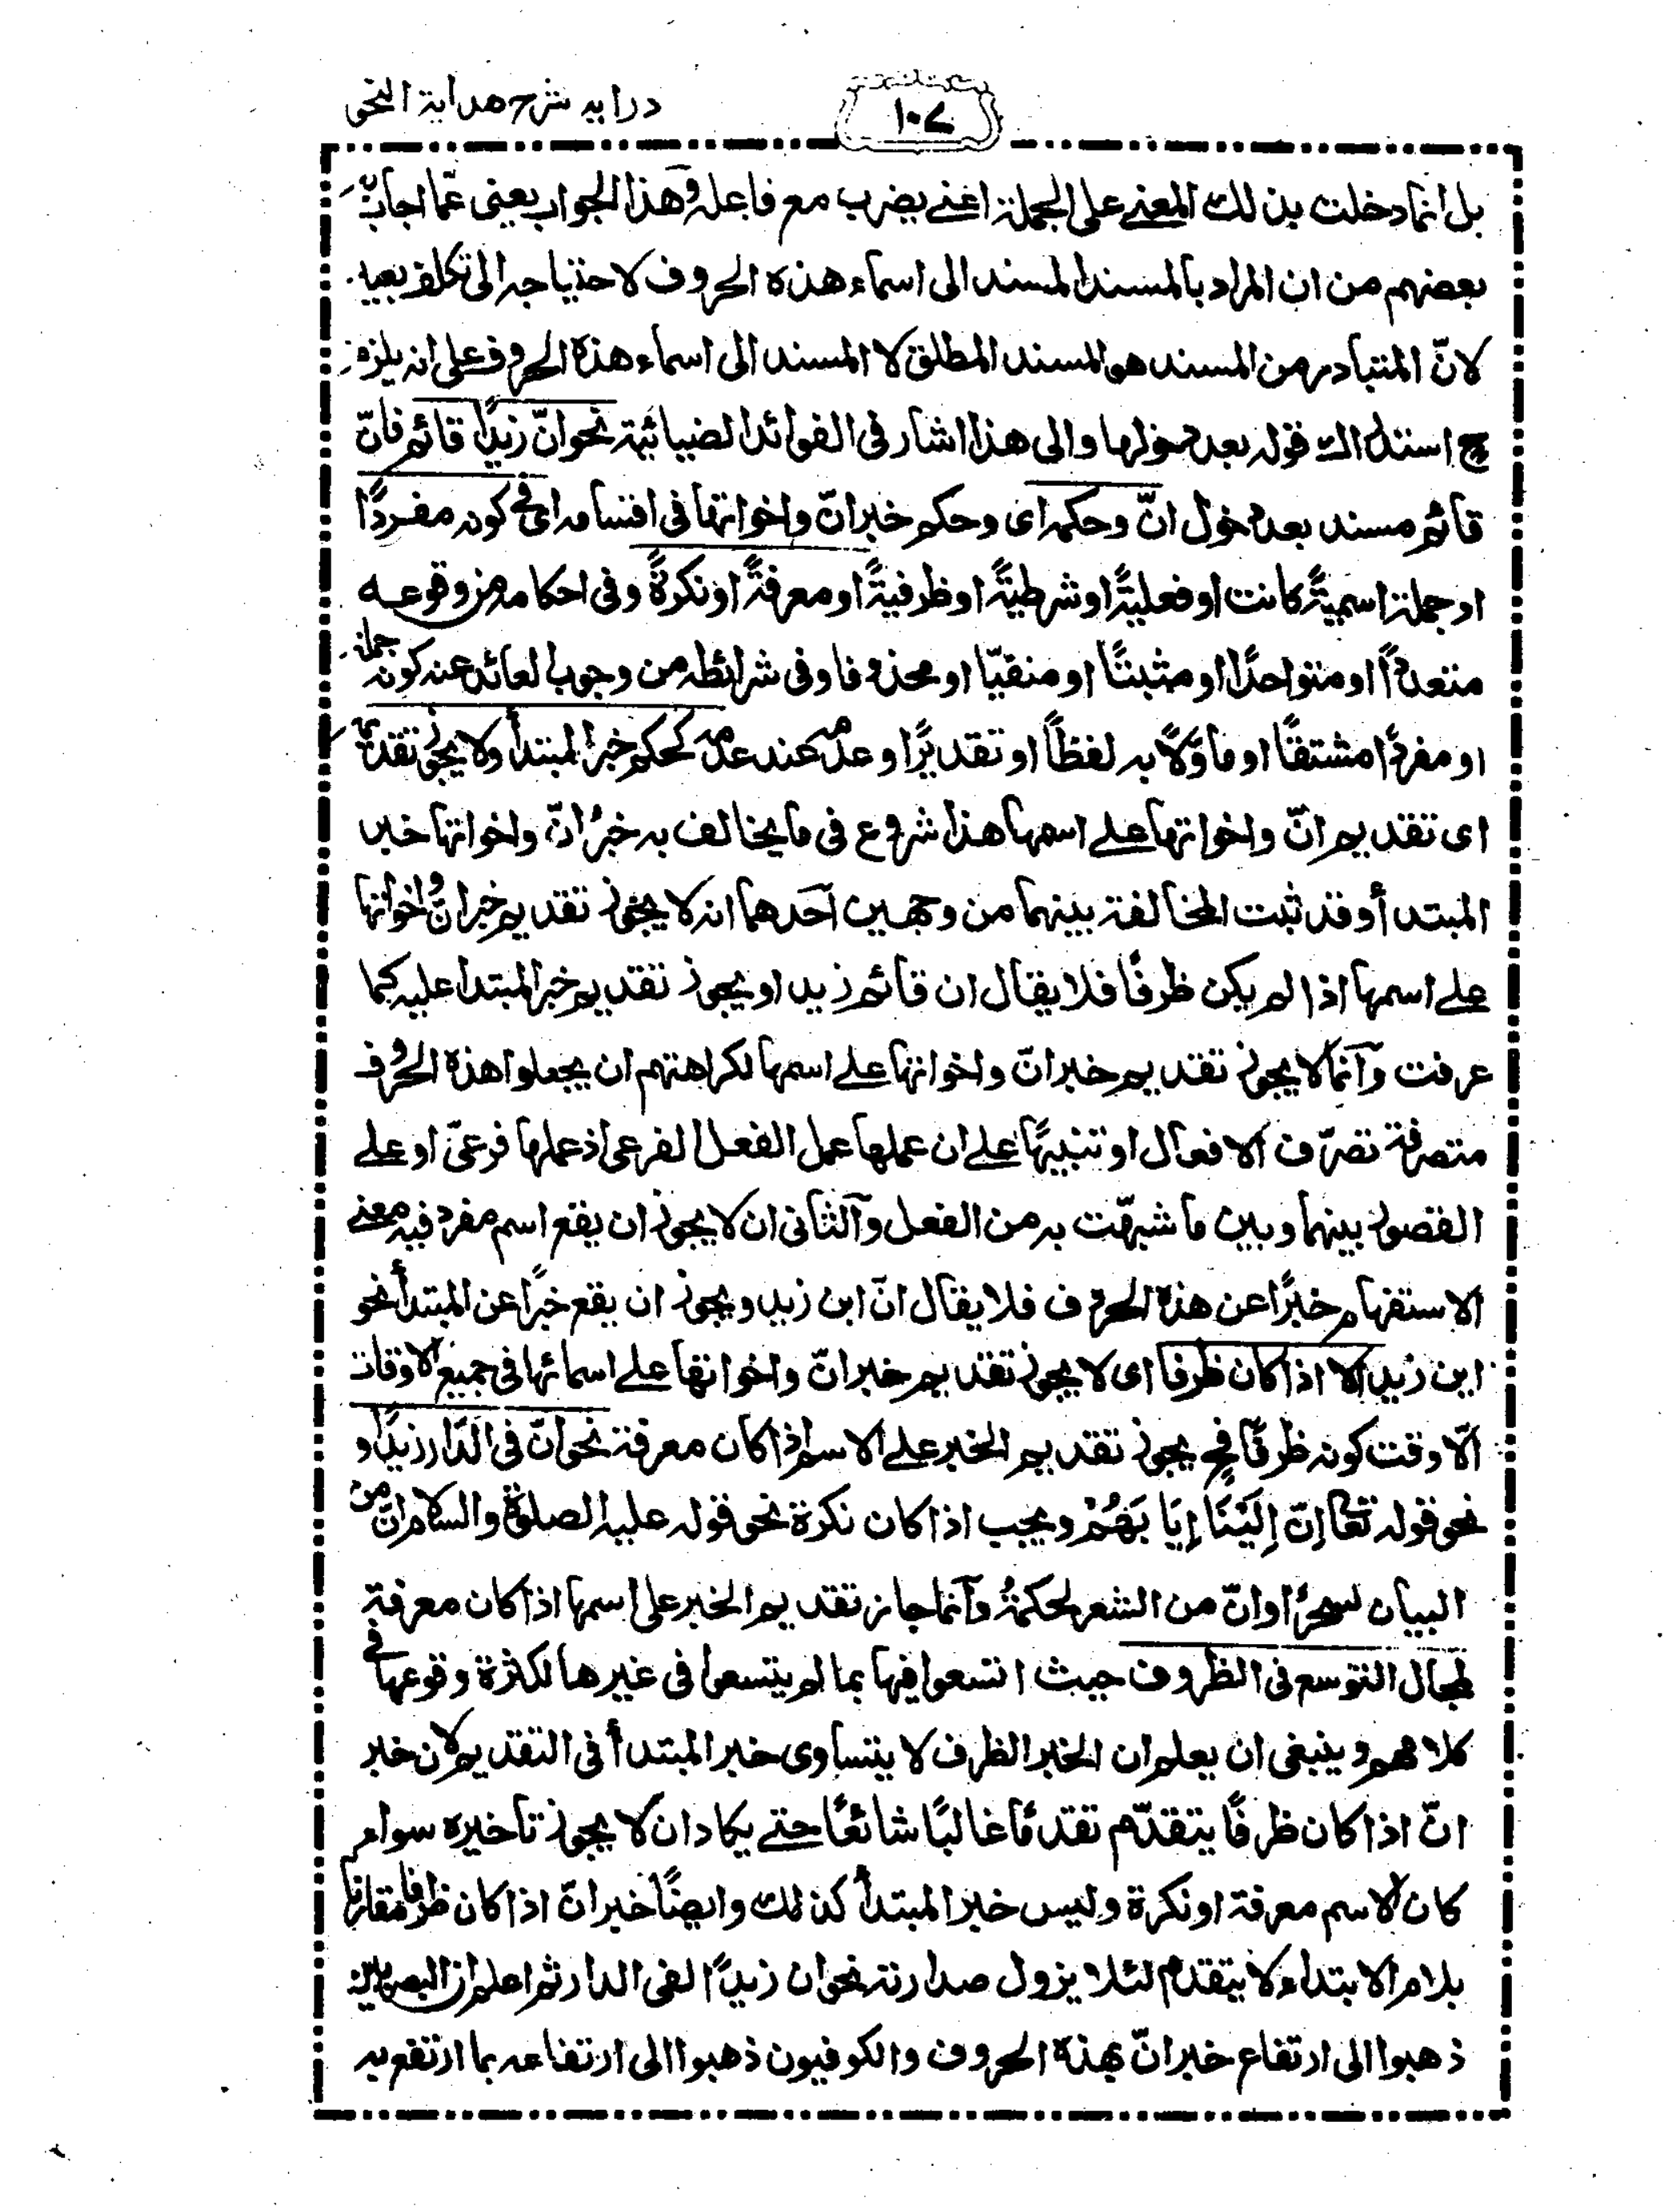 درايه شرح هداية النحو
١٠٧
بل انما دخلت بذلك المعنے على الجملة اعنے يضرب مع فاعله وهذا الجواب يعنى عما اجاب
بعضهم من ان المراد بالمسند المسند الى اسماء هذه الحروف لاحتياجه الى تكلف بعيد
لانّ المتبادر من المسند هو المسند المطلق لا المسند الى اسماء هذه الحروف على انه يلزم
ح استدراك قوله بعد دخولها والى هذا اشار فى الفوائد الضيائية نحو انّ زيدًا قائم فانّ
قائم مسند بعد دخول انّ وحكمه اى وحكم خبر انّ واخواتها فى اقسامه اى فى كونه مفردًا
او جملة اسميةً كانت او فعليةً او شرطيةً او ظرفيةً او معرفةً او نكرةً وفى احكامه من وقوعه
متعددًا او متواحدًا او مثبتًا او منفيّا او محذوفا وفى شرائطه من وجوب العائد عند كونه جملة
او مفردًا مشتقًا او ماوّلًا به لفظًا او تقديرًا وعدمه عند عدمه كحكم خبر المبتدأ ولا يجوز تقديمها
اى تقديم انّ واخواتها علے اسمها هذا شروع فى ما يخالف به خبرُ انّ واخواتها خبر
المبتدأ وقد ثبت المخالفة بينهما من وجهين آحدهما انه لا يجوز تقديم خبر انّ واخواتها
علے اسمها اذا لم يكن ظرفًا فلا يقال ان قائم زيد او يجوز تقديم خبر المبتدا عليه كما
عرفت وآنما لا يجوز تقديم خبر انّ واخواتها علے اسمها لكراهتهم ان يجعلوا هذه الحروف
متصرفة تصرّف الافعال او تنبيهًا علے ان عملها عمل الفعل الفرعى اذ عملها فرعىّ او علے
القصور بينهما وبين ما شبهّت به من الفعل وآلثانى ان لا يجوز ان يقع اسم مفرد فيه معنے
الاستفهام خبرًا عن هذه الحروف فلا يقال انّ اين زيد ويجوز ان يقع خبرًا عن المبتدأ نحو
اين زيد الا اذا كان ظرفا اى لا يجوز تقديم خبر انّ واخواتها علے اسمائها فى جميع الاوقات
الّا وقت كونه ظرفًا فح يجوز تقديم الخبر علے الاسم اذا كان معرفة نحو انّ فى الدّار زيدًا و
نحو قوله تعا اِنّ اِلَيْنَا اِيَابَهُمْ ويجب اذا كان نكرة نحو قوله عليه الصلوة والسلام انّ من
البيان لسحرًا وانّ من الشعر لحكمةً وآنما جاز تقديم الخبر على اسمها اذا كان معرفة
لمجال التوسع فى الظروف حيث اتسعوا فيها بما لم يتسعوا فى غيرها لكثرة وقوعها فى
كلامهم وينبغى ان يعلم ان الخبر الظرف لا يتساوى خبر المبتدأ فى التقديم لان خبر
انّ اذا كان ظرفًا يتقدّم تقدمًا غالبًا شائعًا حتے يكاد ان لا يجوز تاخيره سواء
كان الاسم معرفة او نكرة وليس خبر المبتدأ كذلك وايضًا خبر انّ اذا كان ظرفا مقارنا
بلام الابتداء لا يتقدم لئلا يزول صدارته نحو ان زيدًا لفى الدار ثم اعلم ان البصريين
ذهبوا الى ارتفاع خبر انّ بهذه الحروف والكوفيون ذهبوا الى ارتفاعه بما ارتفع به